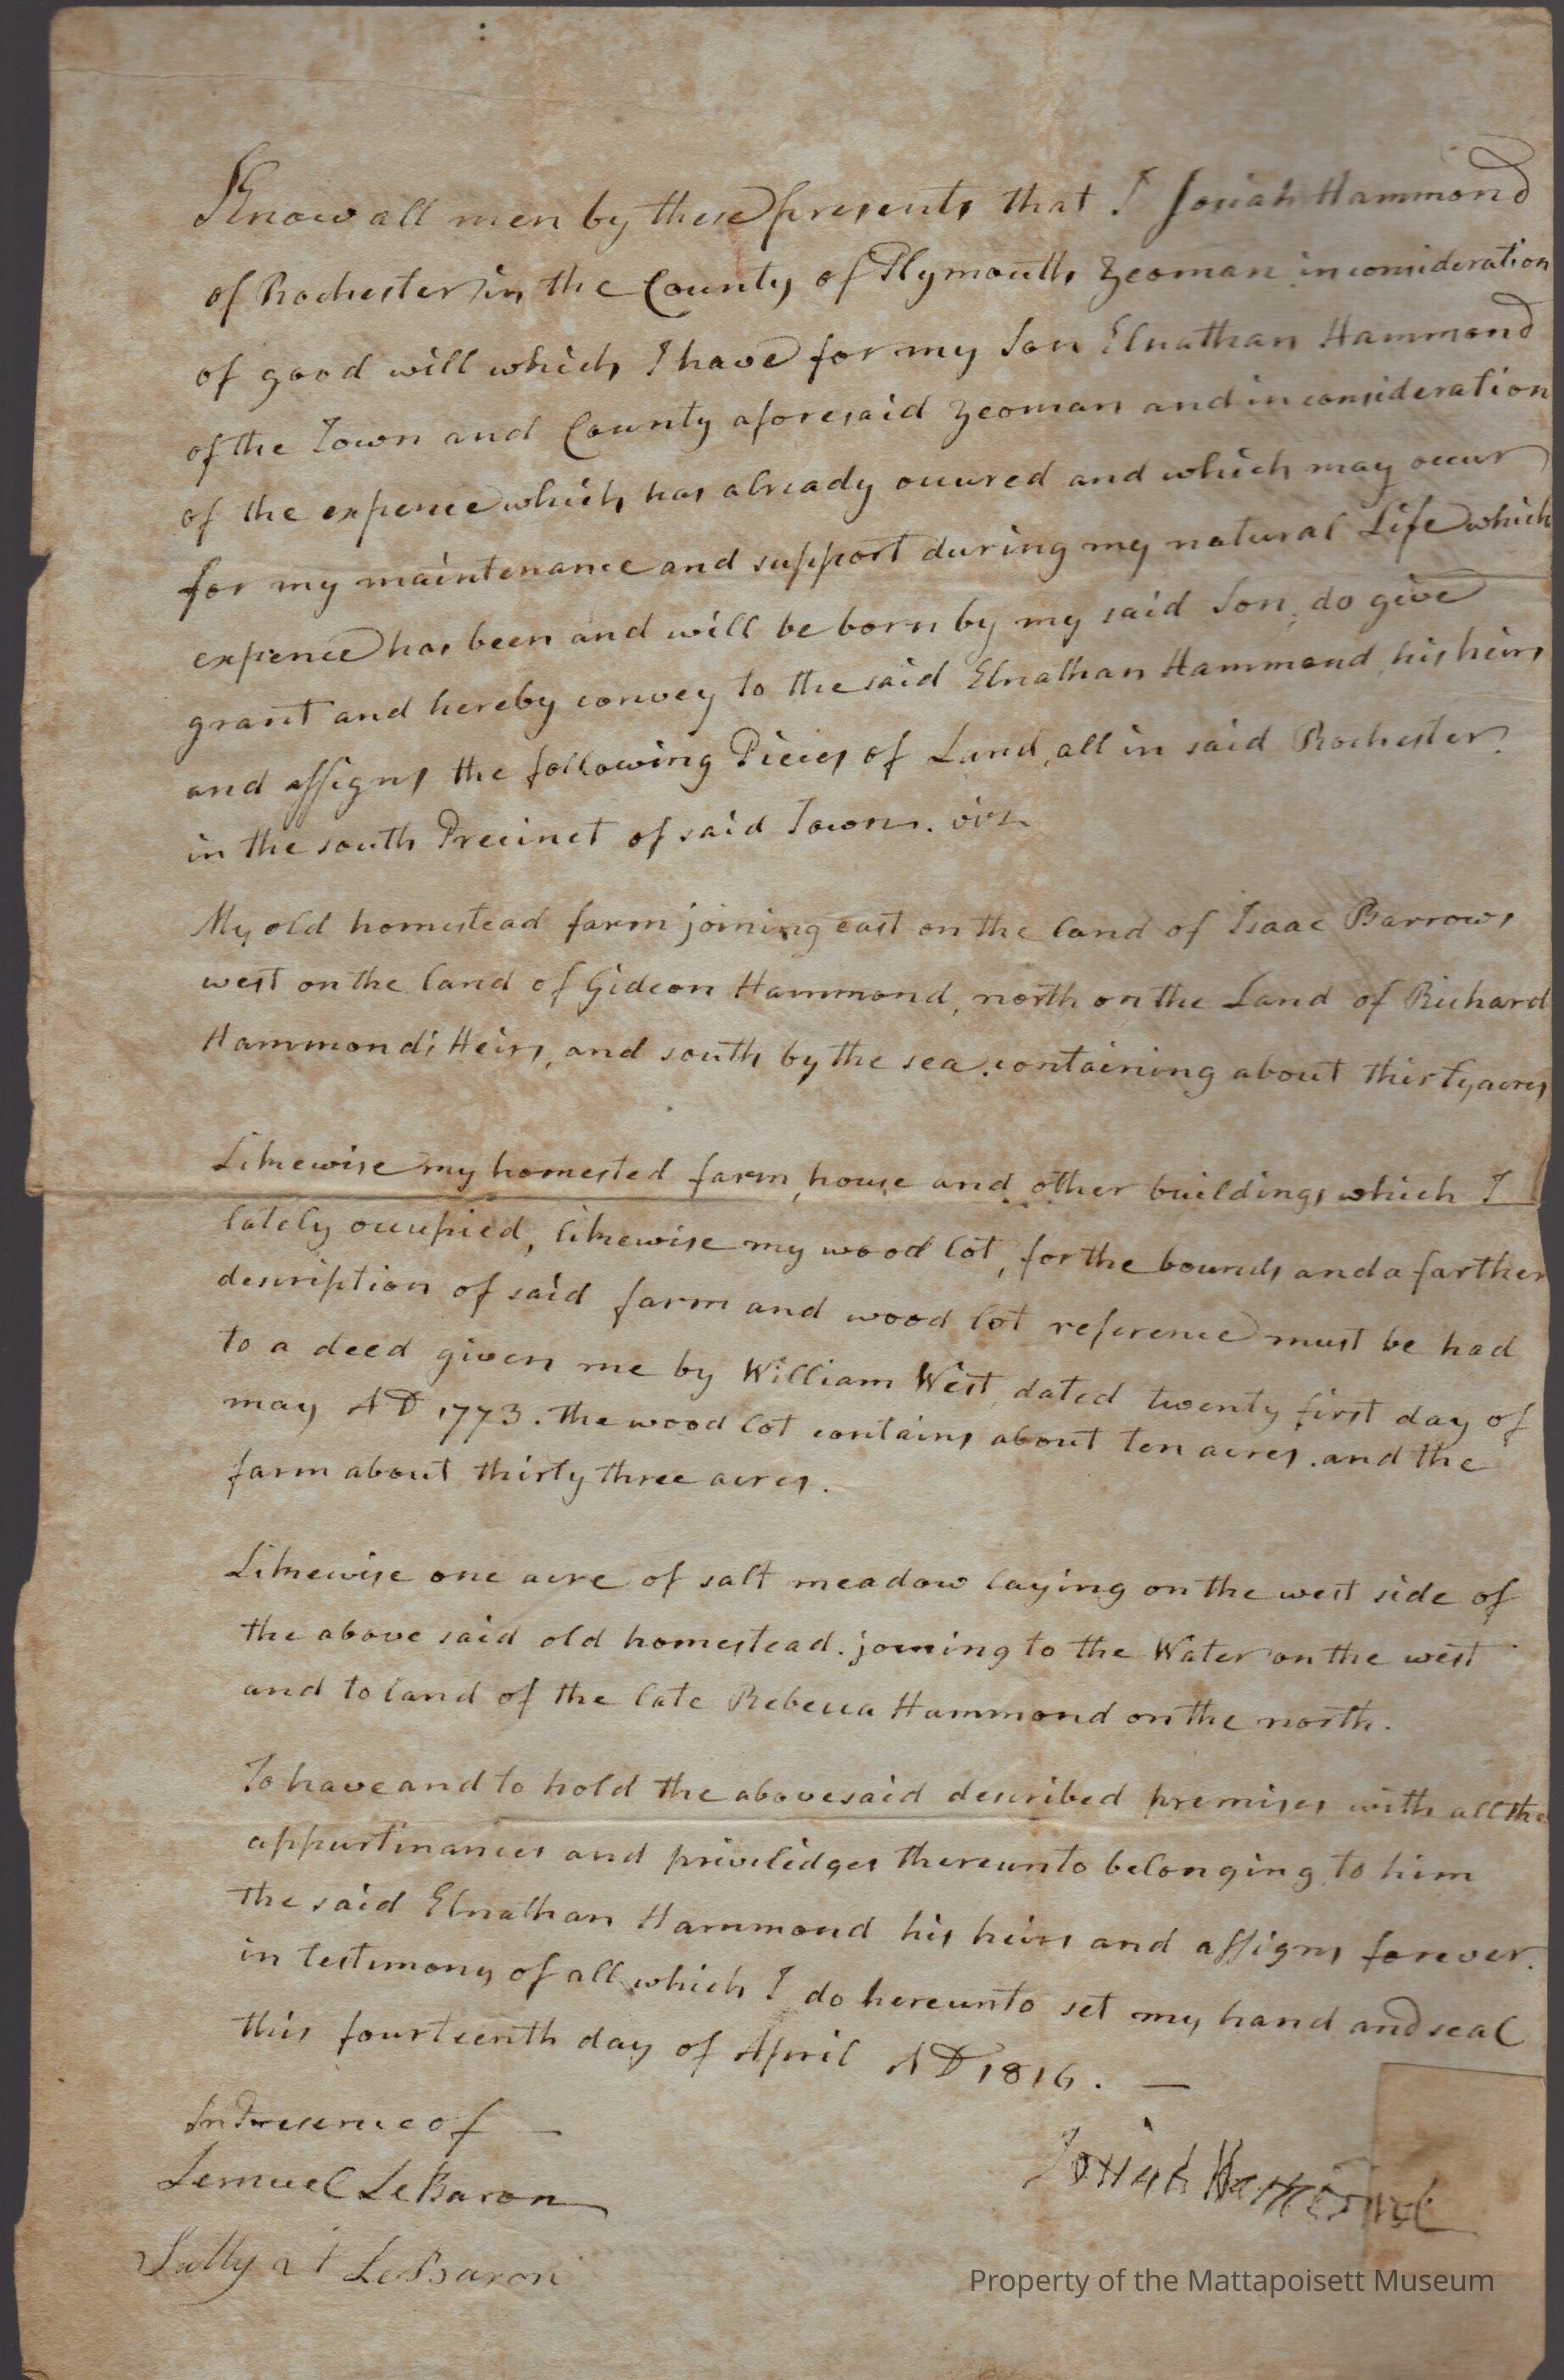 Know all men by these presents that I Josiah Hammond
of Rochester in the County of Plymouth yeoman in consideration
of good will which I have for my Son Elnathan Hammond
of the Town and County aforesaid yeoman and in consideration
of the expence which has already occured and which may occur
for my maintenance and support during my natural Life which
expence has been and will be born by my said Son, do give
grant and hereby convey to the said Elnathan Hammond, his heirs
and assigns the following Pieces of Land, all in said Rochester.
in the south Precinct of said Town. viz.
My old homestead farm joining east on the land of Isaac Barrows
west on the land of Gideon Hammond, north on the Land of Richard
Hammond's Heirs, and south by the sea. containing about thirty acres
Likewise my homested farm, house and other buildings which I
lately occupied, likewise my wood lot, for the bounds and a farther
description of said farm and wood lot reference must be had
to a deed given me by William West, dated twenty first day of
may AD 1773. the wood lot contains about ten acres. and the
farm about thirty three acres.
Likewise one acre of salt meadow laying on the west side of
the above said old homestead. joining to the Water on the west
and to land of the late Rebecca Hammond on the north.
To have and to hold the abovesaid described premises with all the
appurtinances and priviledges thereunto belonging, to him
the said Elnathan Hammond his heirs and assigns forever.
in testimony of all which I do hereunto set my hand and seal
this fourteenth day of April AD 1816. —
In Presence of —
Lemuel LeBaron
Josiah Hammond
Sally LeBaron
Property of the Mattapoisett Museum